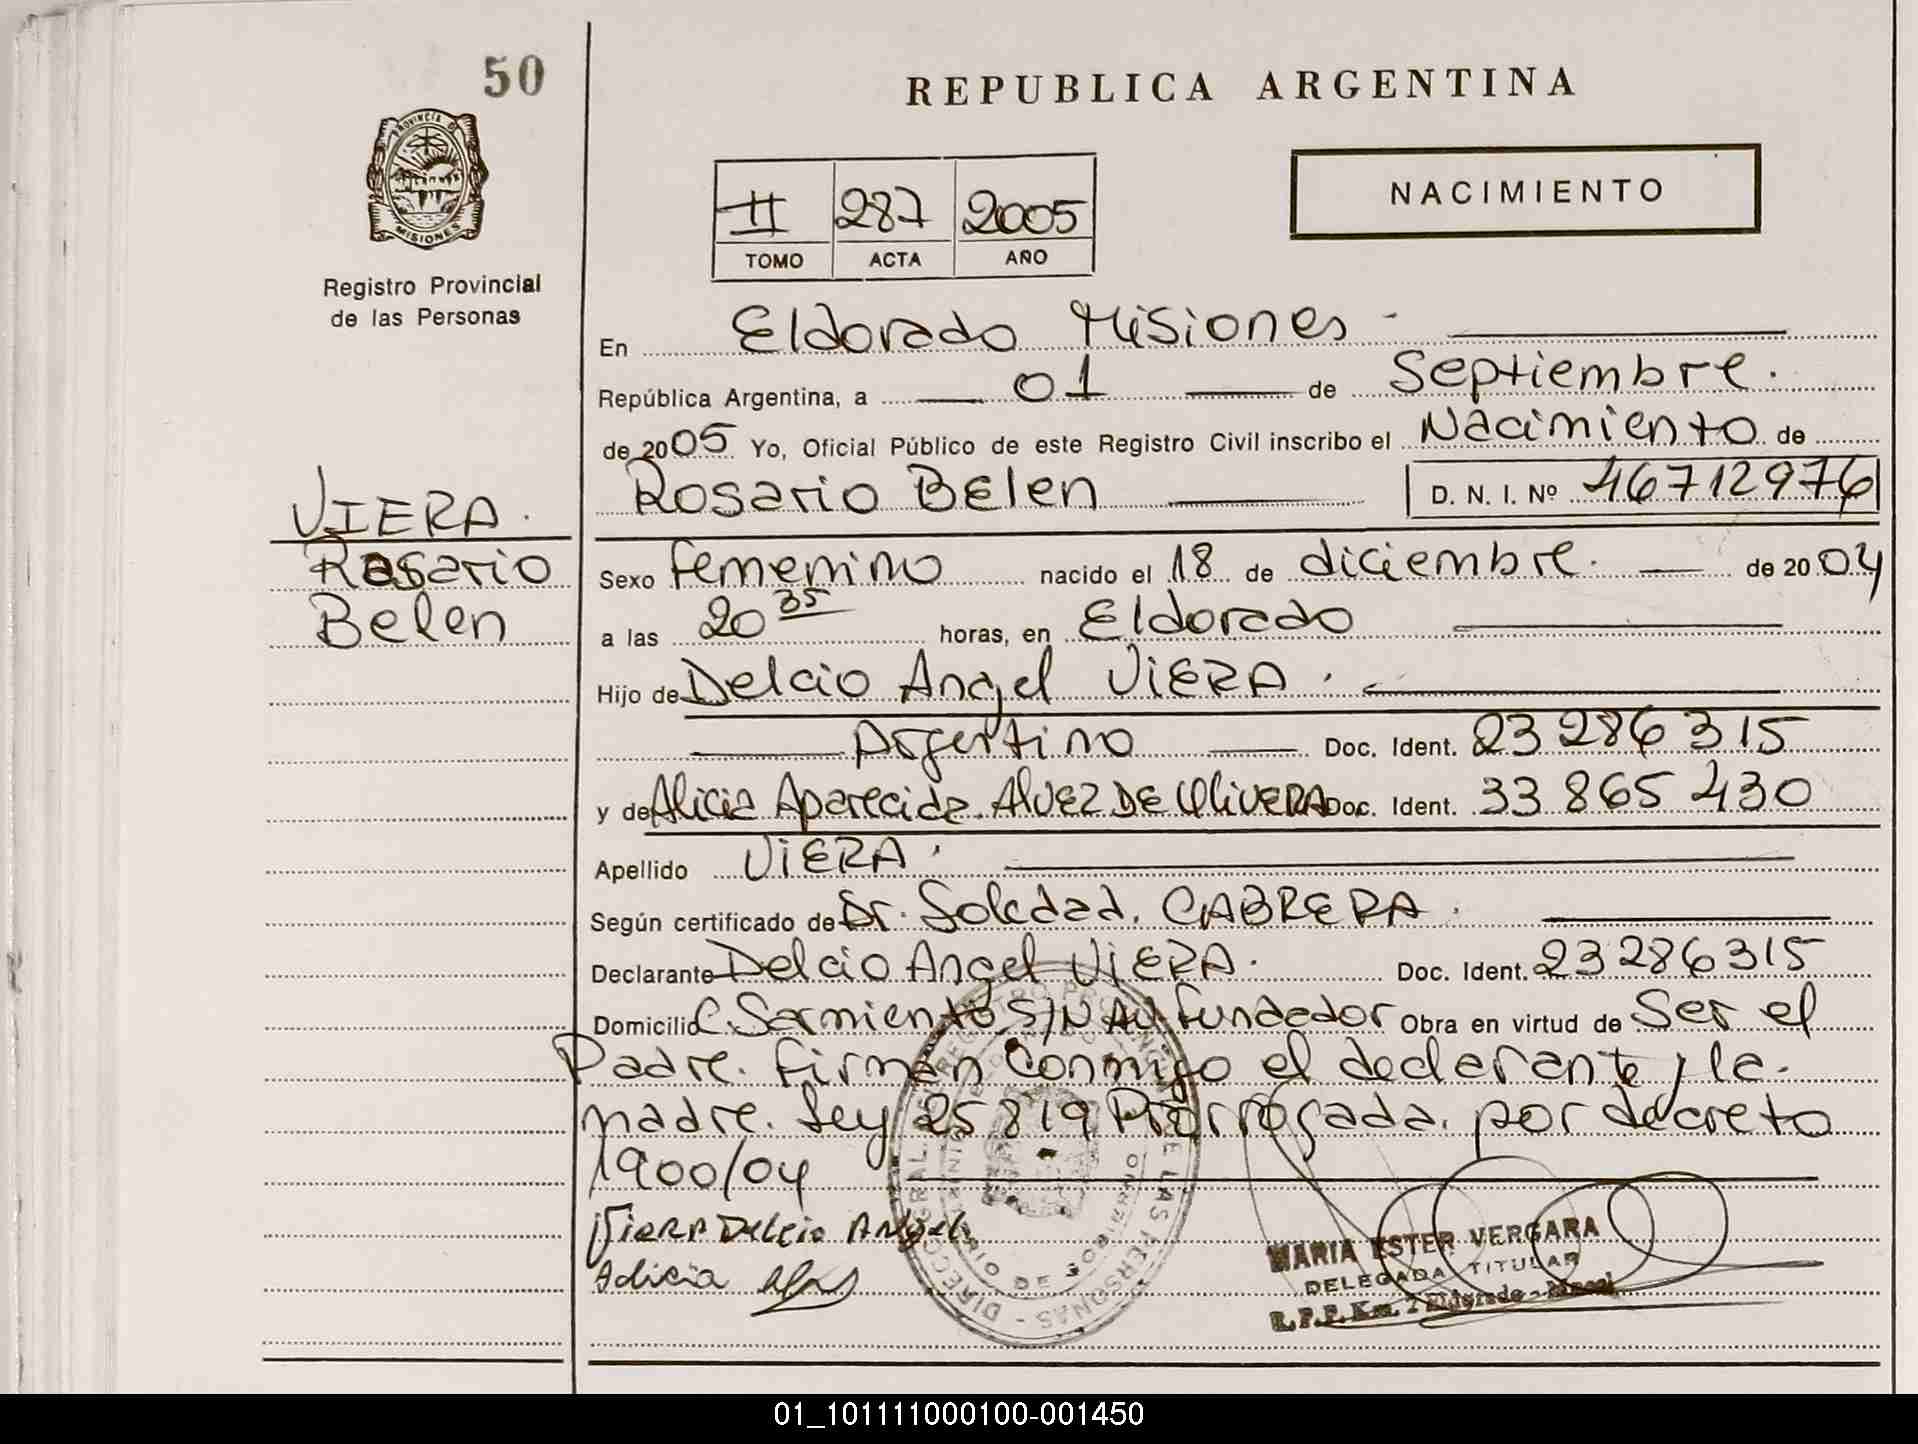 50
REPUBLICA ARGENTINA
PROVINCIA DE
MISIONES
Registro Provincial
de las Personas
II 287 2005
TOMO ACTA AÑO
NACIMIENTO
En Eldorado Misiones
República Argentina, a 01 de Septiembre.
de 2005 Yo, Oficial Público de este Registro Civil inscribo el Nacimiento de
Rosario Belen D. N. I. Nº 46712976
VIERA.
Rosario
Belen
Sexo femenino nacido el 18 de diciembre. de 2004
a las 20 35 horas, en Eldorado
Hijo de Delcio Angel VIERA.
Argentino Doc. Ident. 23 286 315
y de Alicia Aparecida ALVEZ DE OLIVERA Doc. Ident. 33 865 430
Apellido VIERA.
Según certificado de Dr. Soledad. CABRERA.
Declarante Delcio Angel VIERA. Doc. Ident. 23 286 315
Domicilio C. Sarmiento S/N AV. Fundador Obra en virtud de Ser el
Padre. firman Conmigo el declarante y la.
madre. Ley 25 819 Prorrogada. por decreto
1900/04
Viera Delcio Angel
Alicia
MARIA ESTER VERGARA
DELEGADA TITULAR
R.P.P. Km. 7 Eldorado - Mnes
01_101111000100-001450